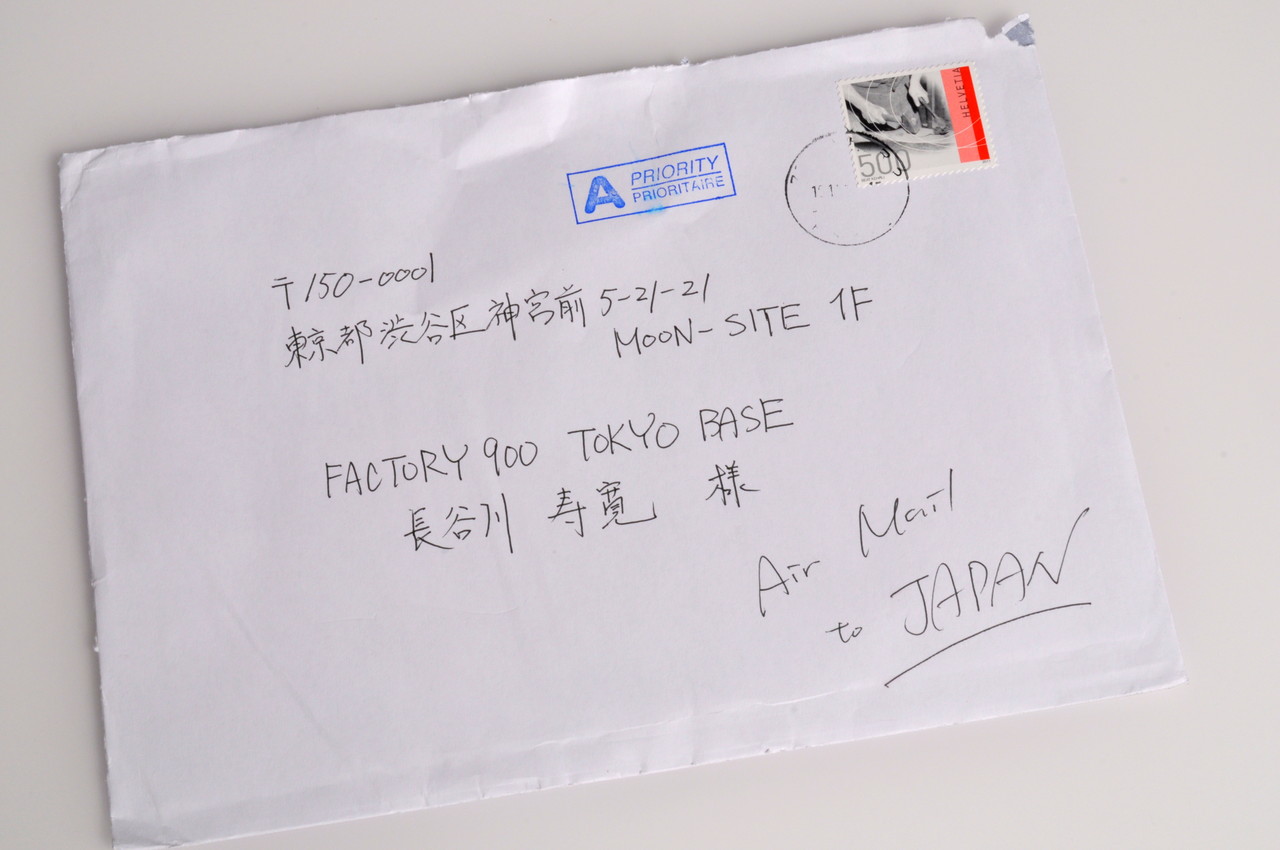 HELVETIA
500
A PRIORITY
PRIORITAIRE
〒150-0001
東京都渋谷区神宮前 5-21-21
MOON-SITE 1F
FACTORY 900 TOKYO BASE
長谷川 寿寛 様
Air Mail
to JAPAN